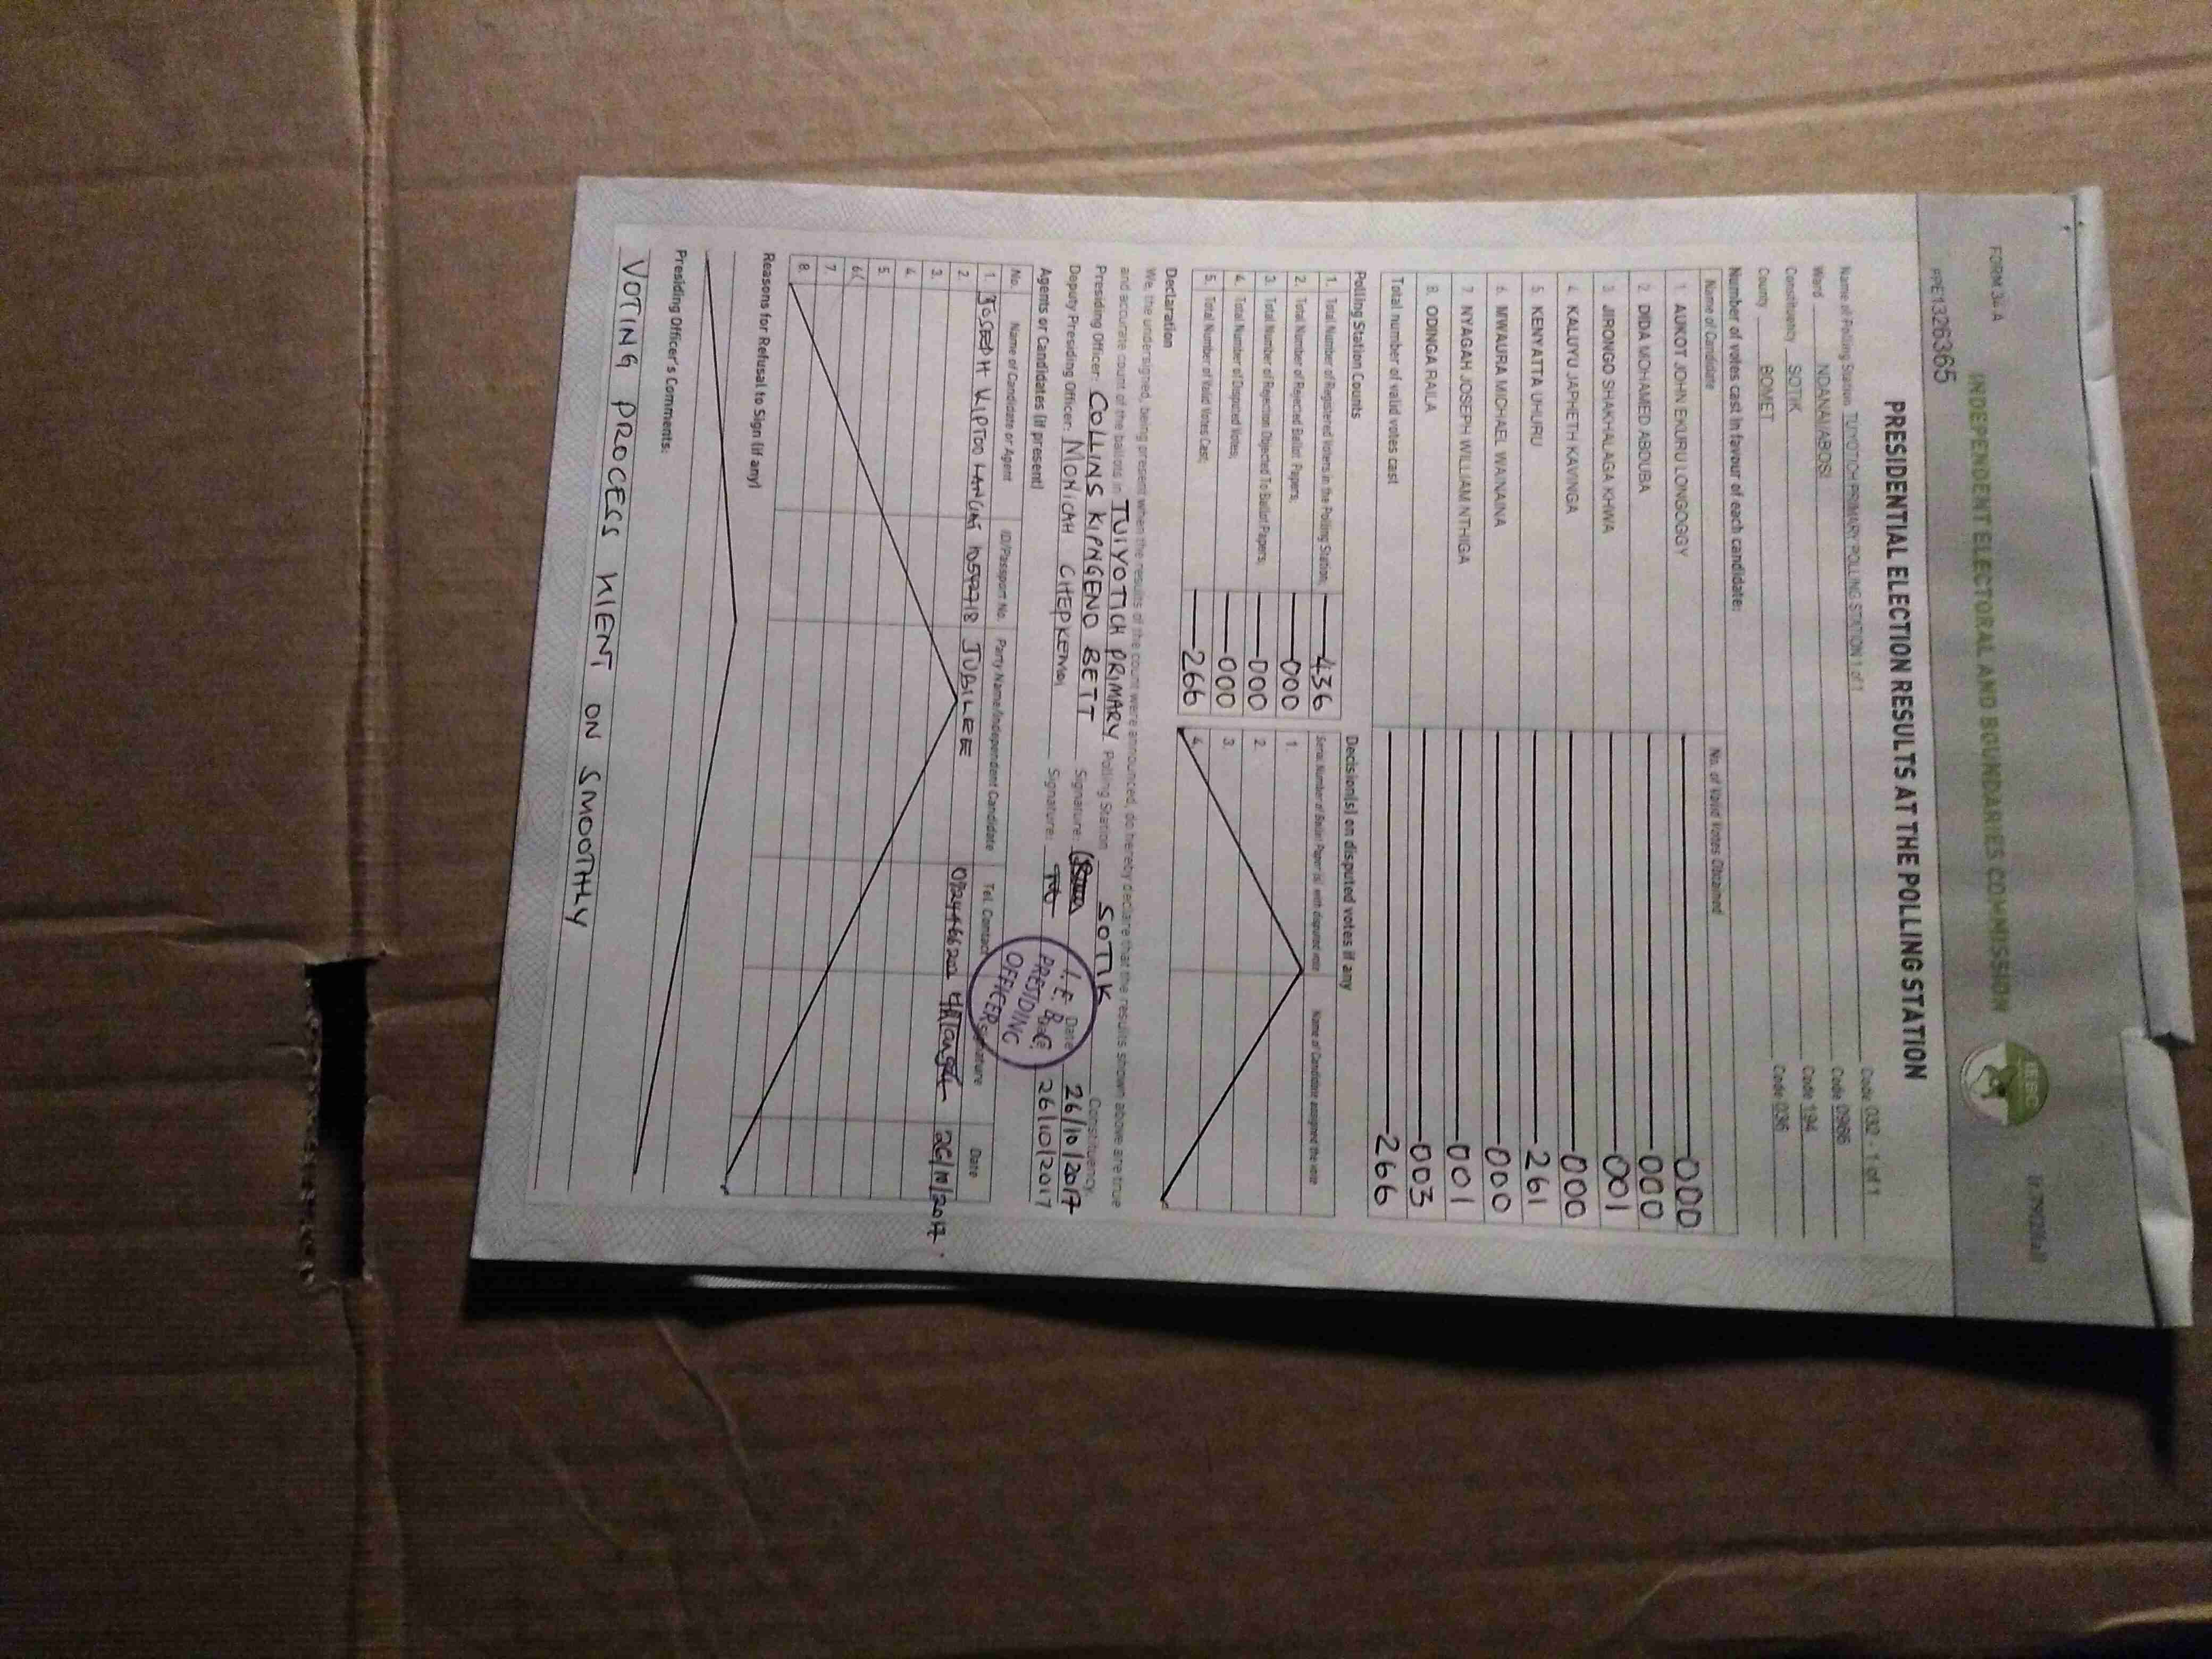 FORM 34 A
INDEPENDENT ELECTORAL AND BOUNDARIES COMMISSION
IEBC
PPE1326365
PRESIDENTIAL ELECTION RESULTS AT THE POLLING STATION
Name of Polling Station TUIYOTICH PRIMARY POLLING STATION 1 of 1 Code 032 - 1 of 1
Ward NDANAI/ABOSI Code 0966
Constituency SOTIK Code 194
County BOMET Code 036
Number of votes cast in favour of each candidate:
Name of Candidate No. of Valid Votes Obtained
1. AUKOT JOHN EKURU LONGOGGY 000
2. DIDA MOHAMED ABDUBA 000
3. JIRONGO SHAKHALAGA KHWA 001
4. KALUYU JAPHETH KAVINGA 000
5. KENYATTA UHURU 261
6. MWAURA MICHAEL WAINAINA 000
7. NYAGAH JOSEPH WILLIAM NTHIGA 001
8. ODINGA RAILA 003
Total number of valid votes cast 266
Polling Station Counts
1. Total Number of Registered Voters in the Polling Station; 436
2. Total Number of Rejected Ballot Papers; 000
3. Total Number of Rejection Objected To Ballot Papers; 000
4. Total Number of Disputed Votes; 000
5. Total Number of Valid Votes Cast; 266
Decision(s) on disputed votes if any
Serial Number of Ballot Paper (s) with disputed vote Name of Candidate assigned the vote
1.
2.
3.
4.
Declaration
We, the undersigned, being present when the results of the count were announced, do hereby declare that the results shown above are true
and accurate count of the ballots in TUIYOTICH PRIMARY Polling Station SOTIK Constituency.
Presiding Officer: COLLINS KIPNGENO BETT Signature: Date 26/10/2017
Deputy Presiding Officer: MONICAH CHEPKEMOI Signature: Date 26/10/2017
I.E.B.C
PRESIDING
OFFICER
Agents or Candidates (if present)
No. Name of Candidate or Agent ID/Passport No. Party Name/Independent Candidate Tel. Contact Signature Date
1. JOSEPH KIPTOO JUBILEE 26/10/2017
2.
3.
4.
5.
6.
7.
8.
Reasons for Refusal to Sign (if any)
Presiding Officer's Comments:
VOTING PROCESS WENT ON SMOOTHLY